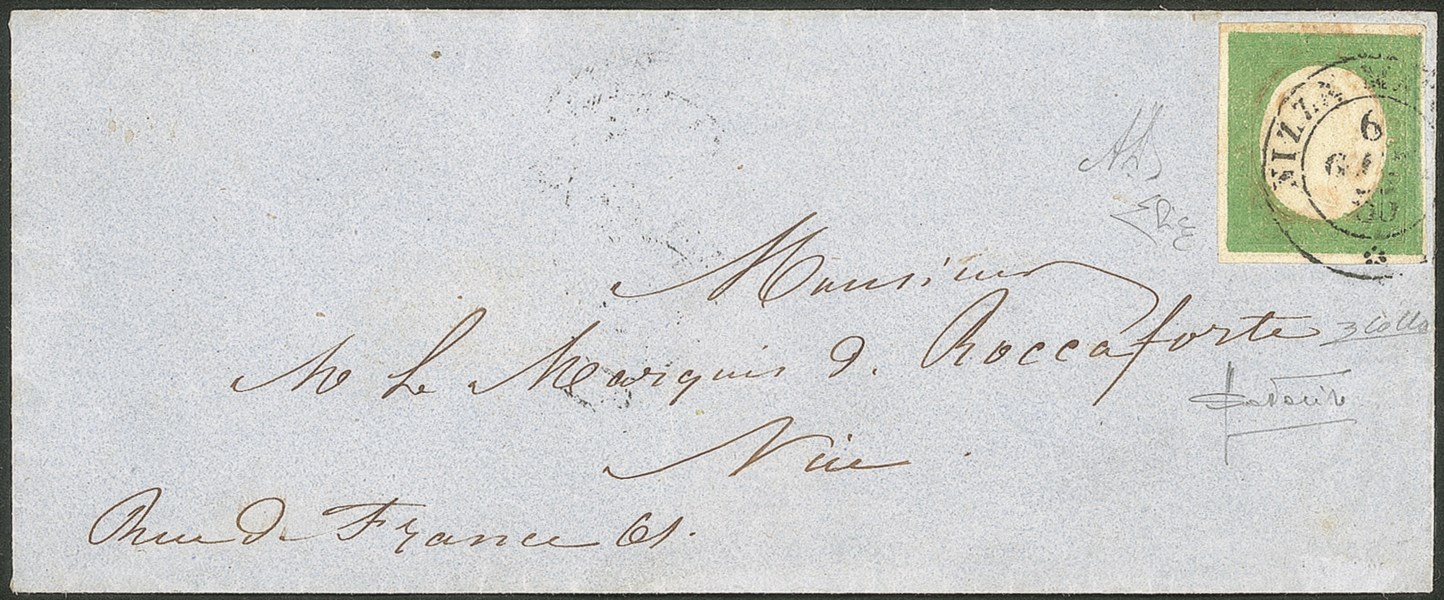 NIZZA MA
6
GIU
Monsieur
M Le Marquis d. Roccaforte
Nice
Rue de France 61.